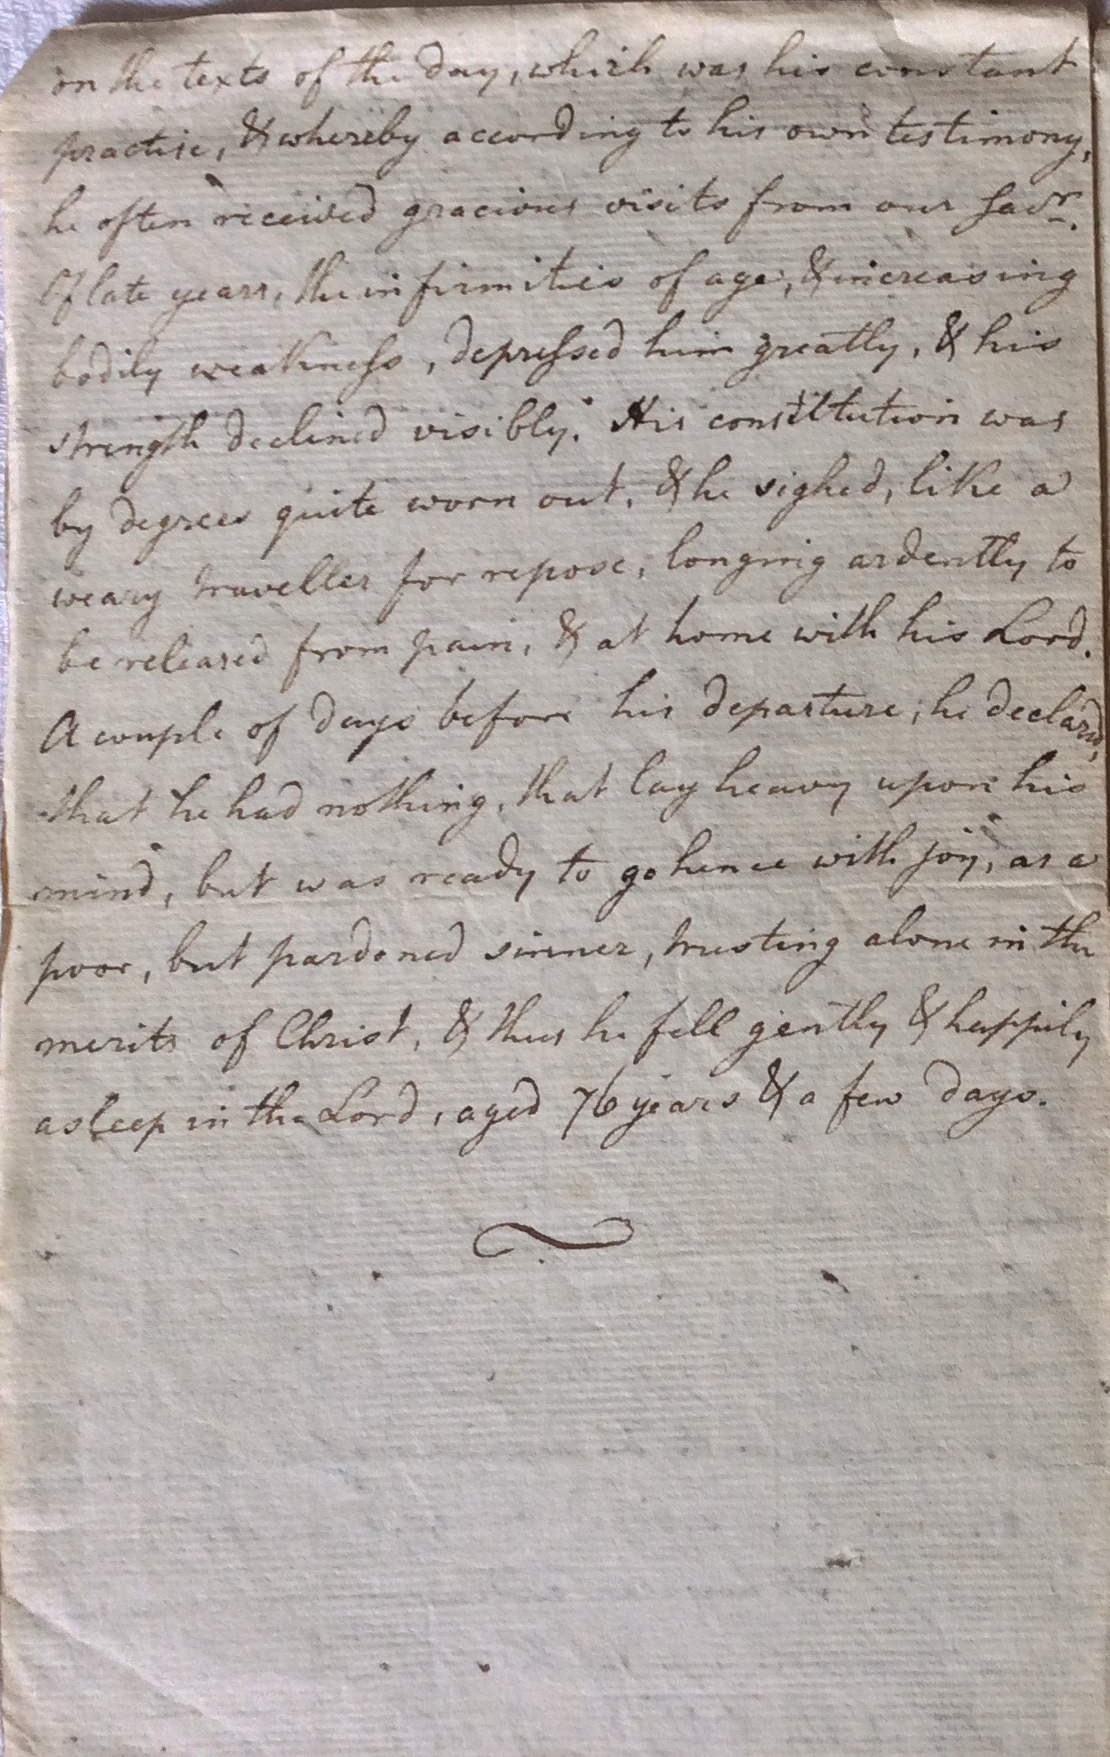 on the texts of the day, which was his constant
practise, & whereby according to his own testimony,
he often received gracious visits from our Savr.
Of late years, the infirmities of age, & increasing
bodily weakness, depressed him greatly, & his
strength declined visibly. His constitution was
by degrees quite worn out, & he sighed, like a
weary traveller for repose, longing ardently to
be released from pain, & at home with his Lord.
A couple of days before his departure, he declared,
that he had nothing, that lay heavy upon his
mind, but was ready to go hence with joy, as a
poor, but pardoned sinner, trusting alone in the
merits of Christ, & thus he fell gently & happily
asleep in the Lord, aged 76 years & a few days.